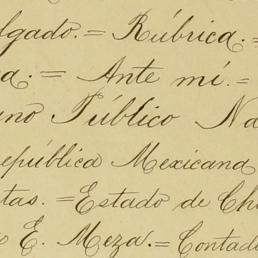 lgado.= Rúbrica.=
a.= Ante mí.=
no Público Na
República Mexicana
tas.=Estado de Ch
E. Meza.=Contad